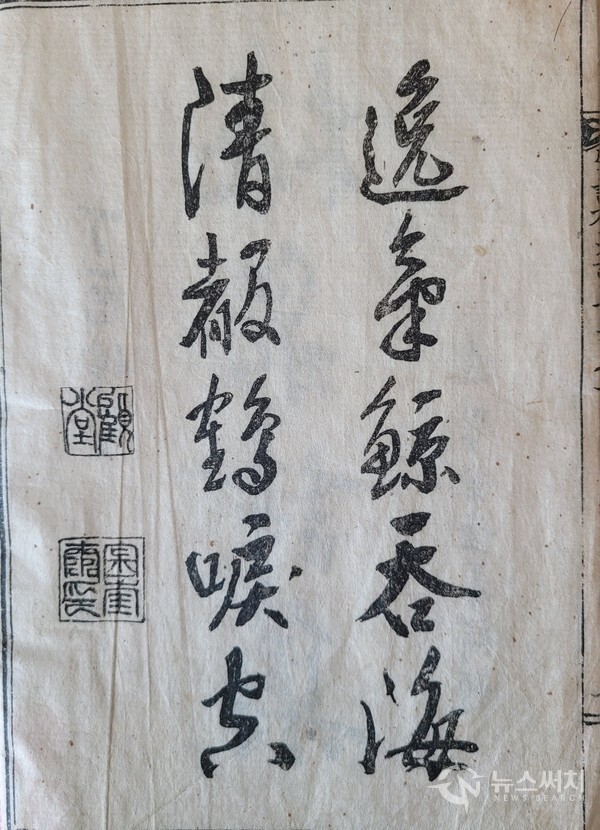 逸氣鯨吞海
清聲鶴唳空
顧堂
뉴스써치
NEWS SEARCH